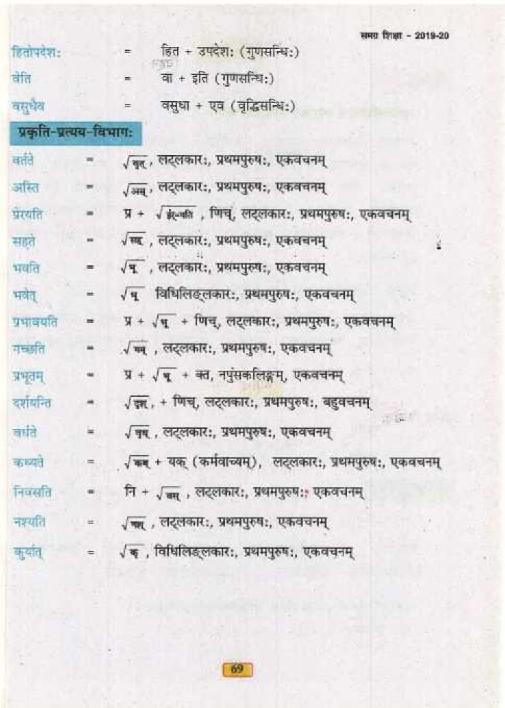 समग्र शिक्षा - 2019-20
हितोपदेशः = हित + उपदेशः (गुणसन्धिः)
वेति = वा + इति (गुणसन्धिः)
वसुधैव = वसुधा + एव (वृद्धिसन्धिः)
प्रकृति-प्रत्यय-विभागः
वर्तते = √वृत्, लट्लकारः, प्रथमपुरुषः, एकवचनम्
अस्ति = √अस्, लट्लकारः, प्रथमपुरुषः, एकवचनम्
प्रेरयति = प्र + √ईर्-गति, णिच्, लट्लकारः, प्रथमपुरुषः, एकवचनम्
सहते = √सह्, लट्लकारः, प्रथमपुरुषः, एकवचनम्
भवति = √भू, लट्लकारः, प्रथमपुरुषः, एकवचनम्
भवेत् = √भू विधिलिङ्लकारः, प्रथमपुरुषः, एकवचनम्
प्रभावयति = प्र + √भू + णिच्, लट्लकारः, प्रथमपुरुषः, एकवचनम्
गच्छति = √गम्, लट्लकारः, प्रथमपुरुषः, एकवचनम्
प्रभूतम् = प्र + √भू + क्त, नपुंसकलिङ्गम्, एकवचनम्
दर्शयन्ति = √दृश्, + णिच्, लट्लकारः, प्रथमपुरुषः, बहुवचनम्
वर्धते = √वृध्, लट्लकारः, प्रथमपुरुषः, एकवचनम्
कथ्यते = √कथ् + यक् (कर्मवाच्यम्), लट्लकारः, प्रथमपुरुषः, एकवचनम्
निवसति = नि + √वस्, लट्लकारः, प्रथमपुरुषः, एकवचनम्
नश्यति = √नश्, लट्लकारः, प्रथमपुरुषः, एकवचनम्
कुर्यात् = √कृ, विधिलिङ्लकारः, प्रथमपुरुषः, एकवचनम्
69